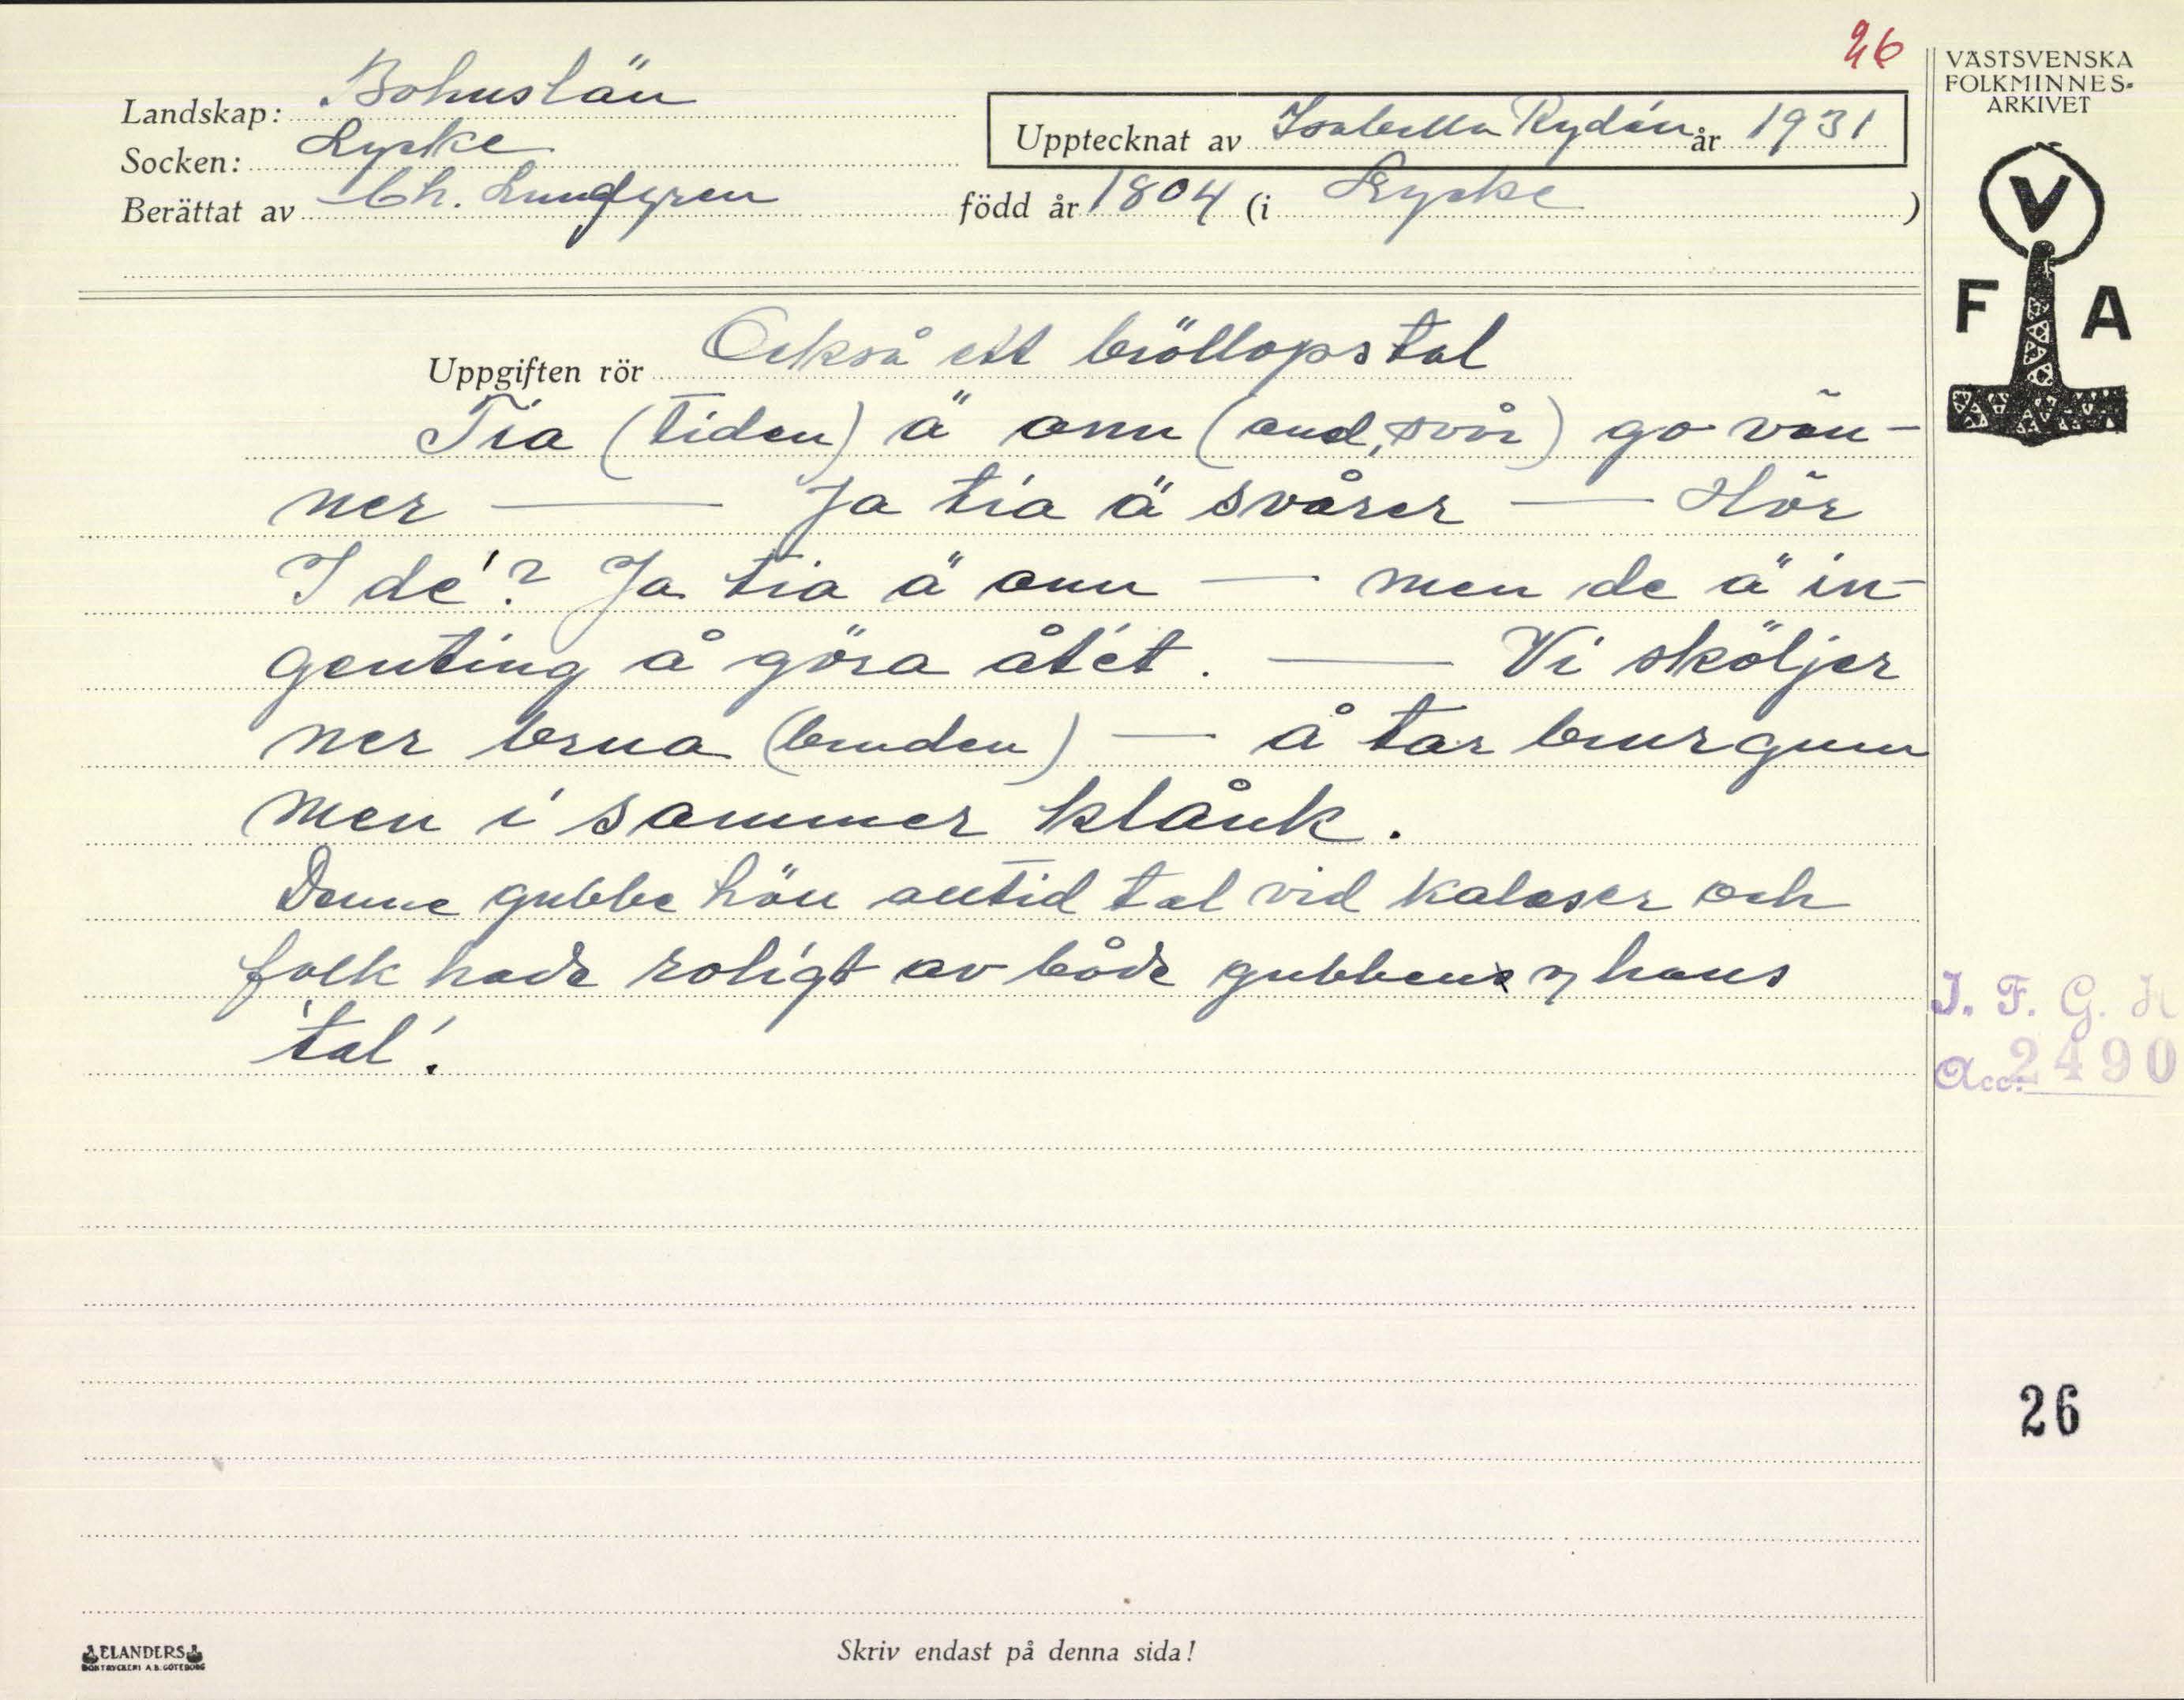 26
VÄSTSVENSKA
FOLKMINNES-
ARKIVET
Landskap: Bohuslän
Upptecknat av Isabella Rydén år 1931
Socken: Lycke
Berättat av Ch. Lundgren född år 1804 (i Lycke )
V
F A
Uppgiften rör Också ett bröllopstal
Tia (tiden) ä onn (ond, svår) go vän-
ner — Ja tia ä svårer — Hör
I de'? Ja tia ä onn — men de ä in-
genting å göra åt'et. — Vi sköljer
ner brua (bruden) — å tar brurgum
men i sammer klånk.
Denne gubbe höll alltid tal vid kalaser och
folk hade roligt av både gubben o hans
'tal'.
I. F. G. H
Acc. 2490
26
ELANDERS
BOKTRYCKERI A.B. GÖTEBORG
Skriv endast på denna sida!